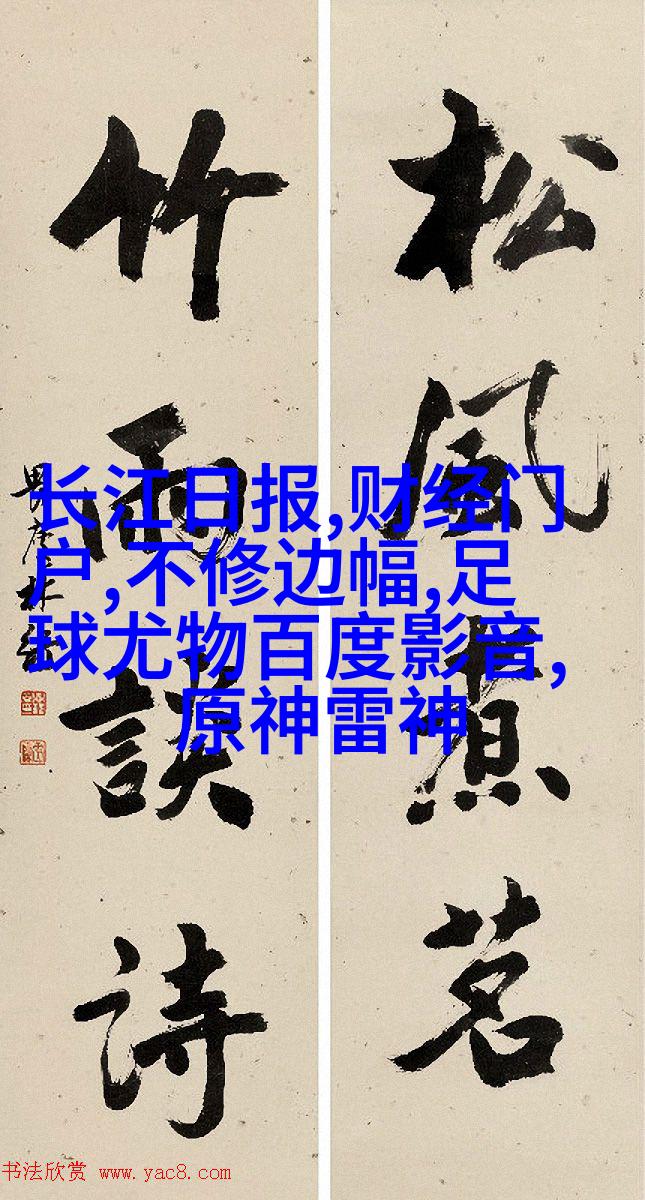 松風煮茗
竹雨談詩
长江日报,财经门
户,不修边幅,足
球尤物百度影音,
原神雷神
书法欣赏 www.yac8.com